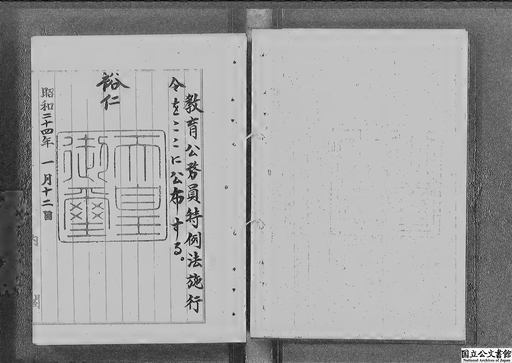 教育公務員特例法施行
令をここに公布する。
裕仁
天皇
御璽
昭和二十四年一月十二日
内閣
国立公文書館
National Archives of Japan